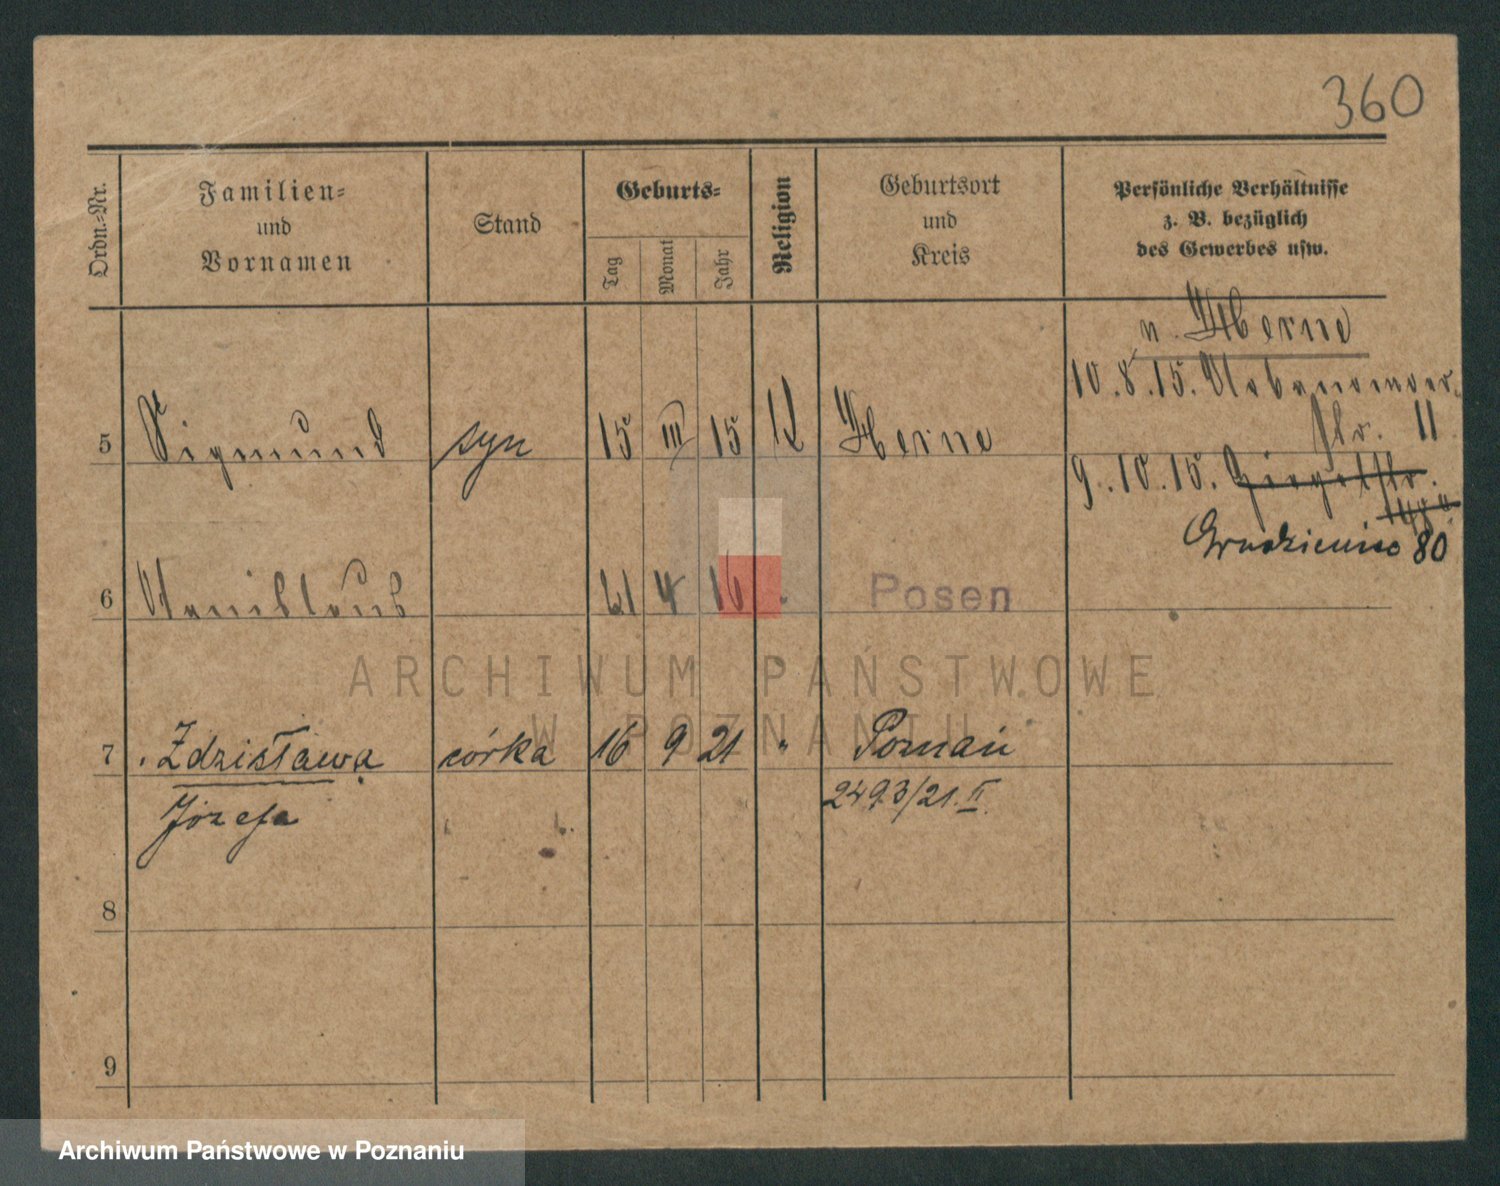 360
Ordn.-Nr.
Familien-
und
Vornamen
Stand
Geburts-
Tag
Monat
Jahr
Religion
Geburtsort
und
Kreis
Persönliche Verhältnisse
z. B. bezüglich
des Gewerbes usw.
v. Herne
10.8.15.
str. 11
5 Sigmund syn 15 III 15 Herne
9.10.15.
80
6 Stanislaus 21 4 16 Posen
ARCHIWUM PAŃSTWOWE
W POZNANIU
7 Zdzisława córka 16 9 21 " Poznań
Józefa 2493/21. II.
8
9
Archiwum Państwowe w Poznaniu